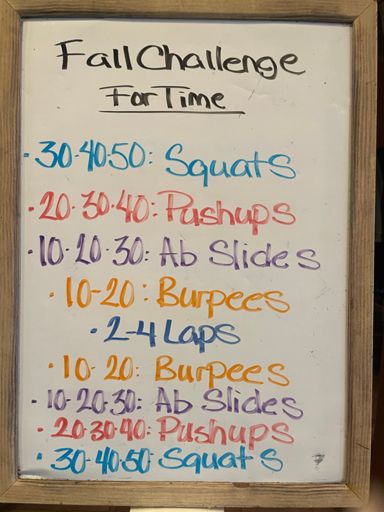 Fall Challenge
For Time
· 30-40-50: Squats
· 20-30-40: Pushups
· 10-20-30: Ab Slides
· 10-20: Burpees
· 2-4 Laps
· 10-20: Burpees
· 10-20-30: Ab Slides
· 20-30-40: Pushups
· 30-40-50 Squats